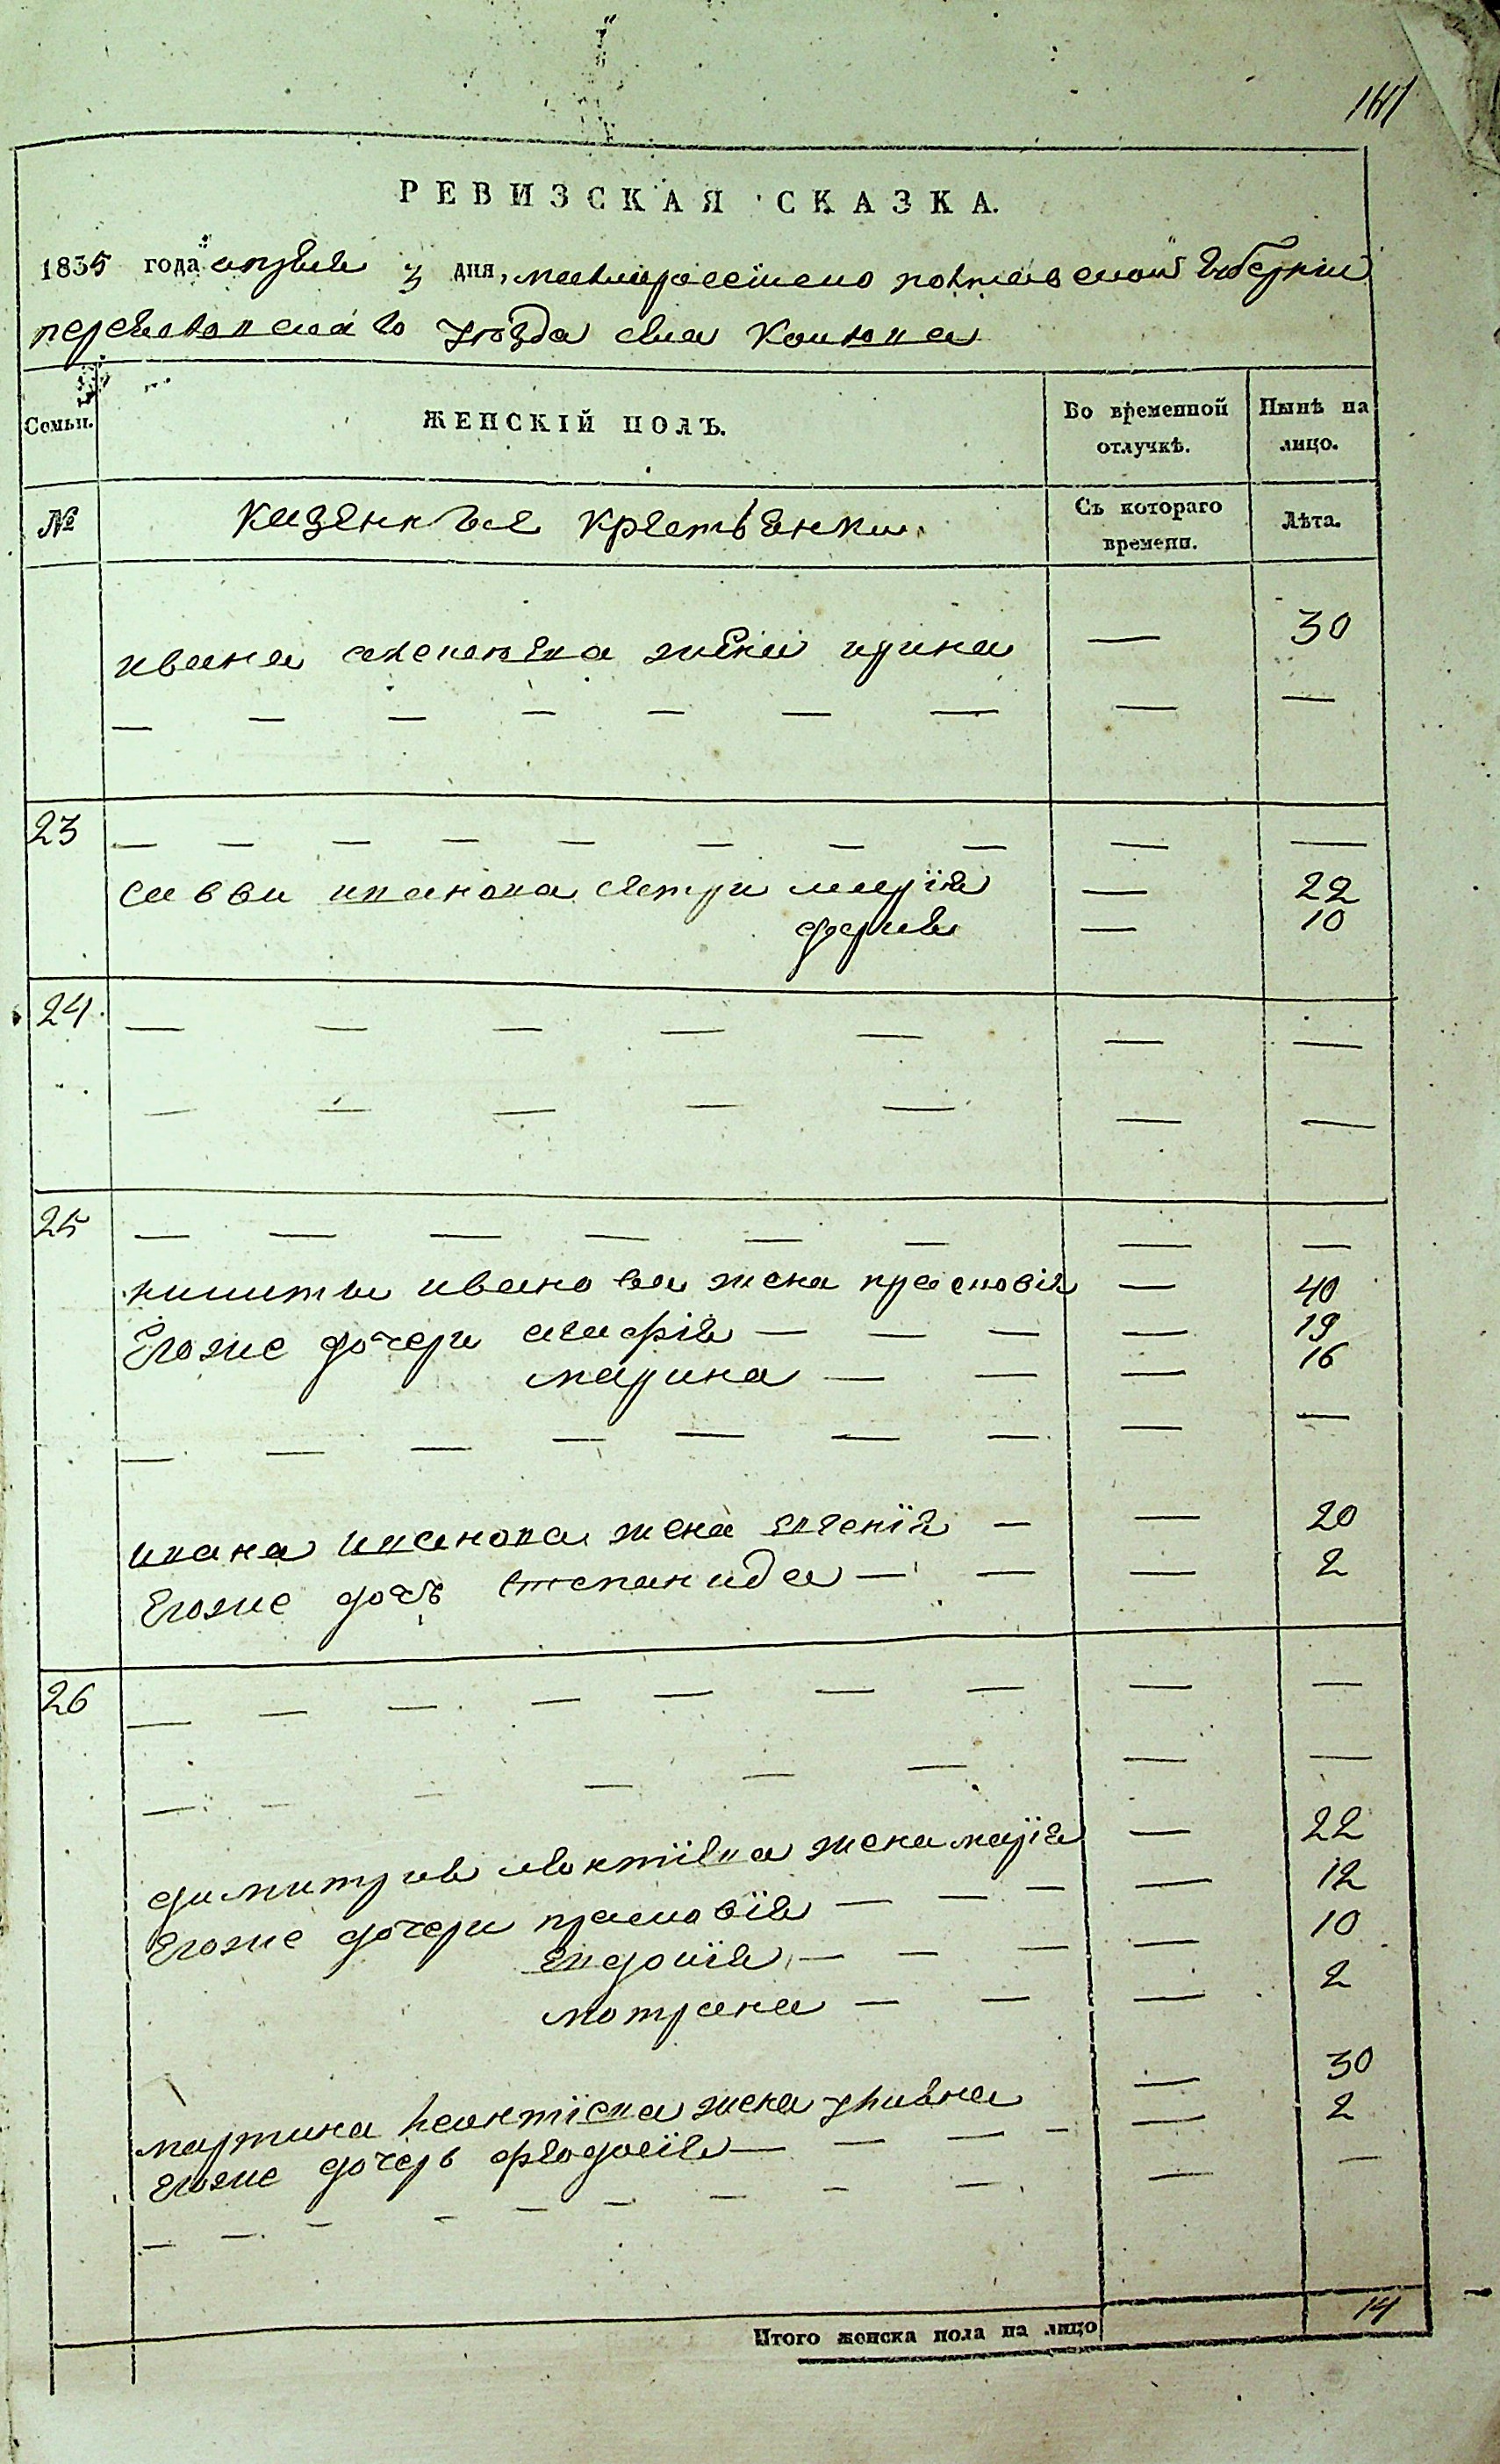 РЕВИЗСКАЯ СКАЗКА.
1835 года апреля 3 дня, малороссийско полтавской губернии
переяславскаго уѣзда села
Семьи. ЖЕНСКІЙ ПОЛЪ. Во временной отлучкѣ. Нынѣ на лицо.
№ казенные крестьянки Съ котораго времени. Лѣта.
ивана жена ирина — 30
— — — — — — — — —
23 — — — — — — — — —
саввы иванова сестри марія — 22
дария — 10
24 — — — — — — —
— — — — — — —
25 — — — — — — — —
никиты иванова жена прасковія — 40
Егоже дочери агафія — — — — 19
марина — — — 16
— — — — — — — — —
ивана иванова жена евгенія — — 20
Егоже дочь степанида — — — 2
26 — — — — — — — — —
— — — — — — — —
димитрия леонтіева жена марія — 22
Егоже дочери прасковія — — — — 12
Евдокія — — — — 10
мотрона — — — 2
мартина леонтіева жена уляна — 30
Егоже дочерь феодосія — — — — — 2
— — — — — — — — — —
Итого женска пола на лицо 14